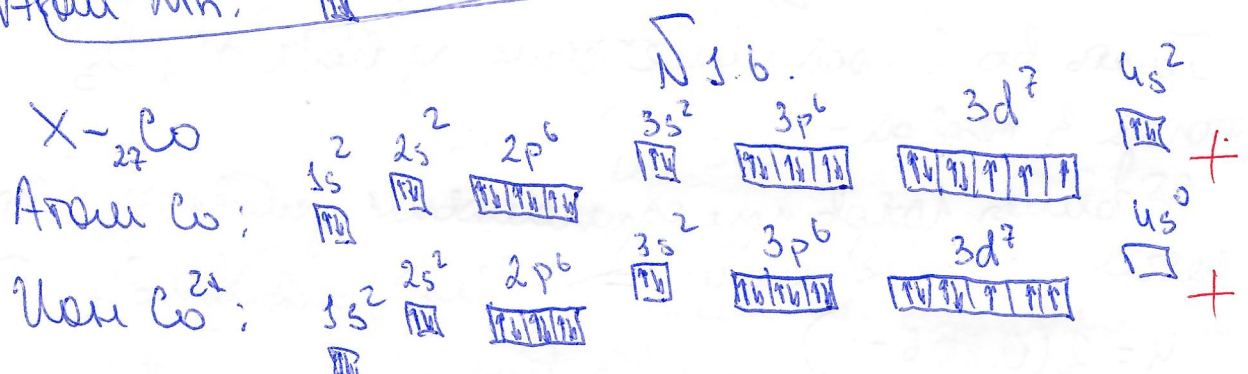 Атом Mn:
N 1.6.
X - ₂₇Co
Атом Co: 1s² 2s² 2p⁶ 3s² 3p⁶ 3d⁷ 4s² +
Ион Co²⁺: 1s² 2s² 2p⁶ 3s² 3p⁶ 3d⁷ 4s⁰ +